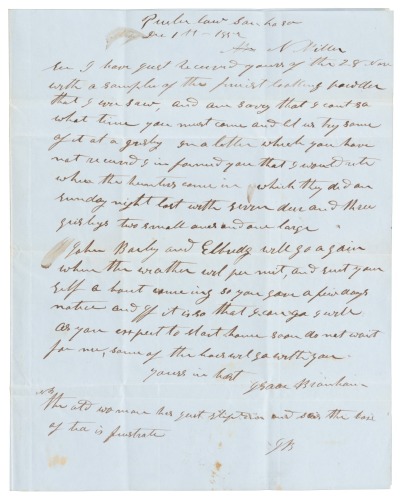 Dec 1st 1852
Hon N Miller
Sir I have just received yours of the 28 Nov
with a sample of the finest looking powder
that I ever saw, and am sorry that I cant sa
what time you must come and let us try some
of it at a grisly in a letter which you have
not received I informed you that I woud rite
when the hunters come in which they did on
sunday night last with seven deer and three
grislys two small ones and one large
John Barly and Elbridg will go again
when the weather wil permit, and suit your
self about comeing so you gave a few days
notice and if it is so that I can go I will
As you expect to start home soon do not wait
for me, some of the boys wil go with you
yours in hast
Isaac Branham
NB
the old woman has just stept in and ses the box
of tea is first rate
IB